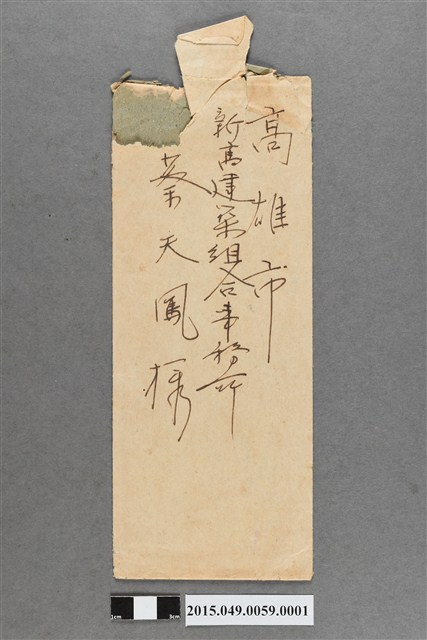 高雄市
新高建築組合事務所
蔡天鳳樣
1cm 3cm
2015.049.0059.0001